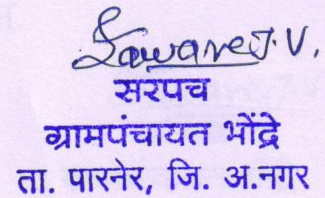 Laware J. V.
सरपच
ग्रामपंचायत भोंद्रे
ता. पारनेर, जि. अ.नगर